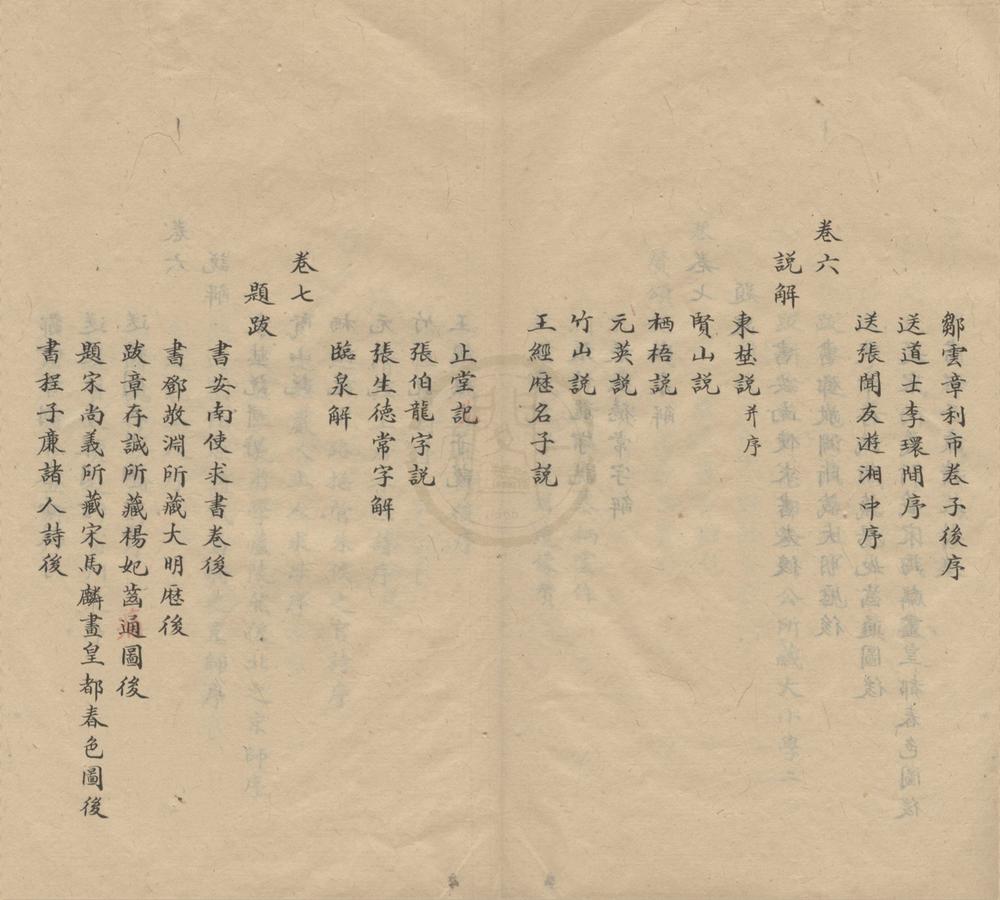 鄒雲章利市卷子後序
送道士李環間序
送張聞友遊湘中序
卷六
説解
東埜説并序
賢山説
栖梧説
元英説
竹山説
王經歴名子説
止堂記
張伯龍字説
張生徳常字解
臨泉解
卷七
題跋
書安南使求書卷後
書鄧敬淵所藏大明歴後
跋章存誠所藏楊妃菡通圖後
題宋尚義所藏宋馬麟畫皇都春色圖後
書程子廉諸人詩後